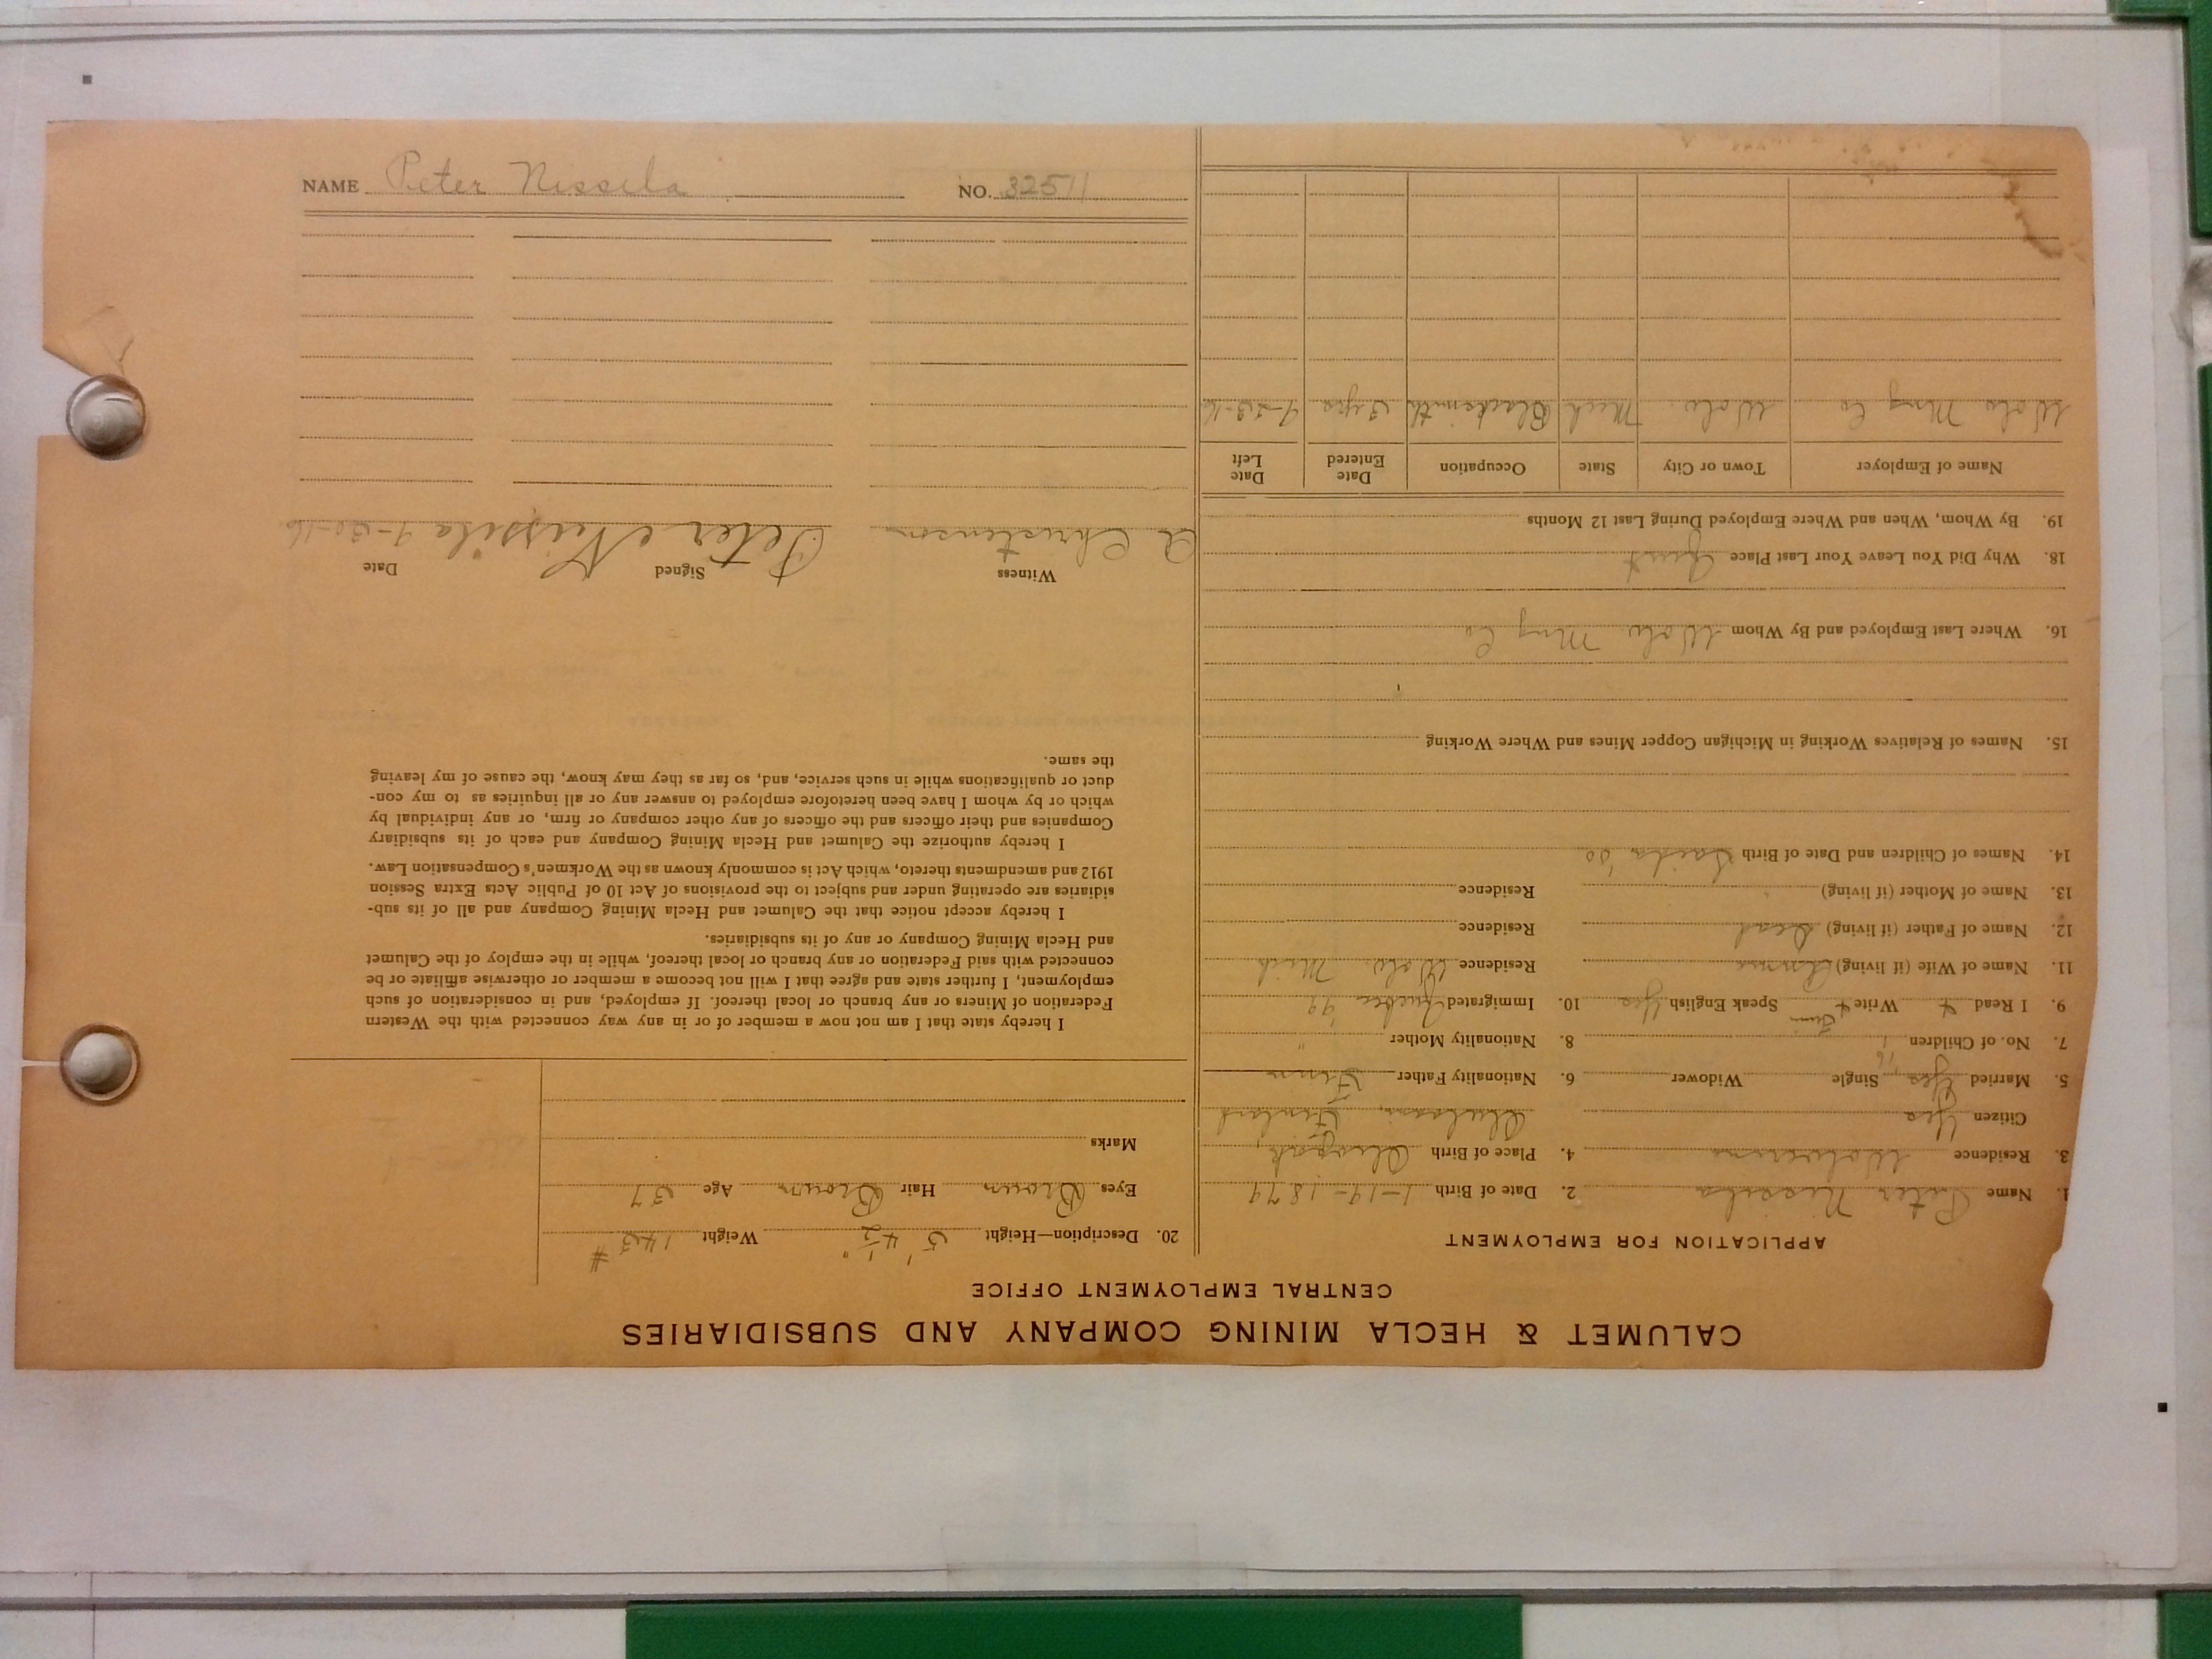 NAME Peter Nissila NO. 32511
CALUMET & HECLA MINING COMPANY AND SUBSIDIARIES
CENTRAL EMPLOYMENT OFFICE
APPLICATION FOR EMPLOYMENT
1. Name Peter Nissila 2. Date of Birth 1-19-1879
3. Residence Wolverine 4. Place of Birth
Citizen Yes Finland
5. Married Yes Single Widower 6. Nationality Father Finn
7. No. of Children 1 8. Nationality Mother "
9. I Read Write Finn Speak English Yes 10. Immigrated Quebec '99
11. Name of Wife (if living) Anna Residence Wolv. Mich
12. Name of Father (if living) Dead Residence
13. Name of Mother (if living) Residence
14. Names of Children and Date of Birth '00
15. Names of Relatives Working in Michigan Copper Mines and Where Working
16. Where Last Employed and By Whom Wolv. Mng Co
18. Why Did You Leave Your Last Place Quit
19. By Whom, When and Where Employed During Last 12 Months
Name of Employer Town or City State Occupation Date Entered Date Left
Wolv Mng Co Wolv. Mich Blacksmith 3 yrs 9-23-16
20. Description—Height 5' 4½" Weight 143 #
Eyes Brown Hair Brown Age 37
Marks
I hereby state that I am not now a member of or in any way connected with the Western
Federation of Miners or any branch or local thereof. If employed, and in consideration of such
employment, I further state and agree that I will not become a member or otherwise affiliate or be
connected with said Federation or any branch or local thereof, while in the employ of the Calumet
and Hecla Mining Company or any of its subsidiaries.
I hereby accept notice that the Calumet and Hecla Mining Company and all of its sub-
sidiaries are operating under and subject to the provisions of Act 10 of Public Acts Extra Session
1912 and amendments thereto, which Act is commonly known as the Workmen's Compensation Law.
I hereby authorize the Calumet and Hecla Mining Company and each of its subsidiary
Companies and their officers and the officers of any other company or firm, or any individual by
which or by whom I have been heretofore employed to answer any or all inquiries as to my con-
duct or qualifications while in such service, and, so far as they may know, the cause of my leaving
the same.
Witness Signed Date
A Christenson Peter Nissila 9-30-16